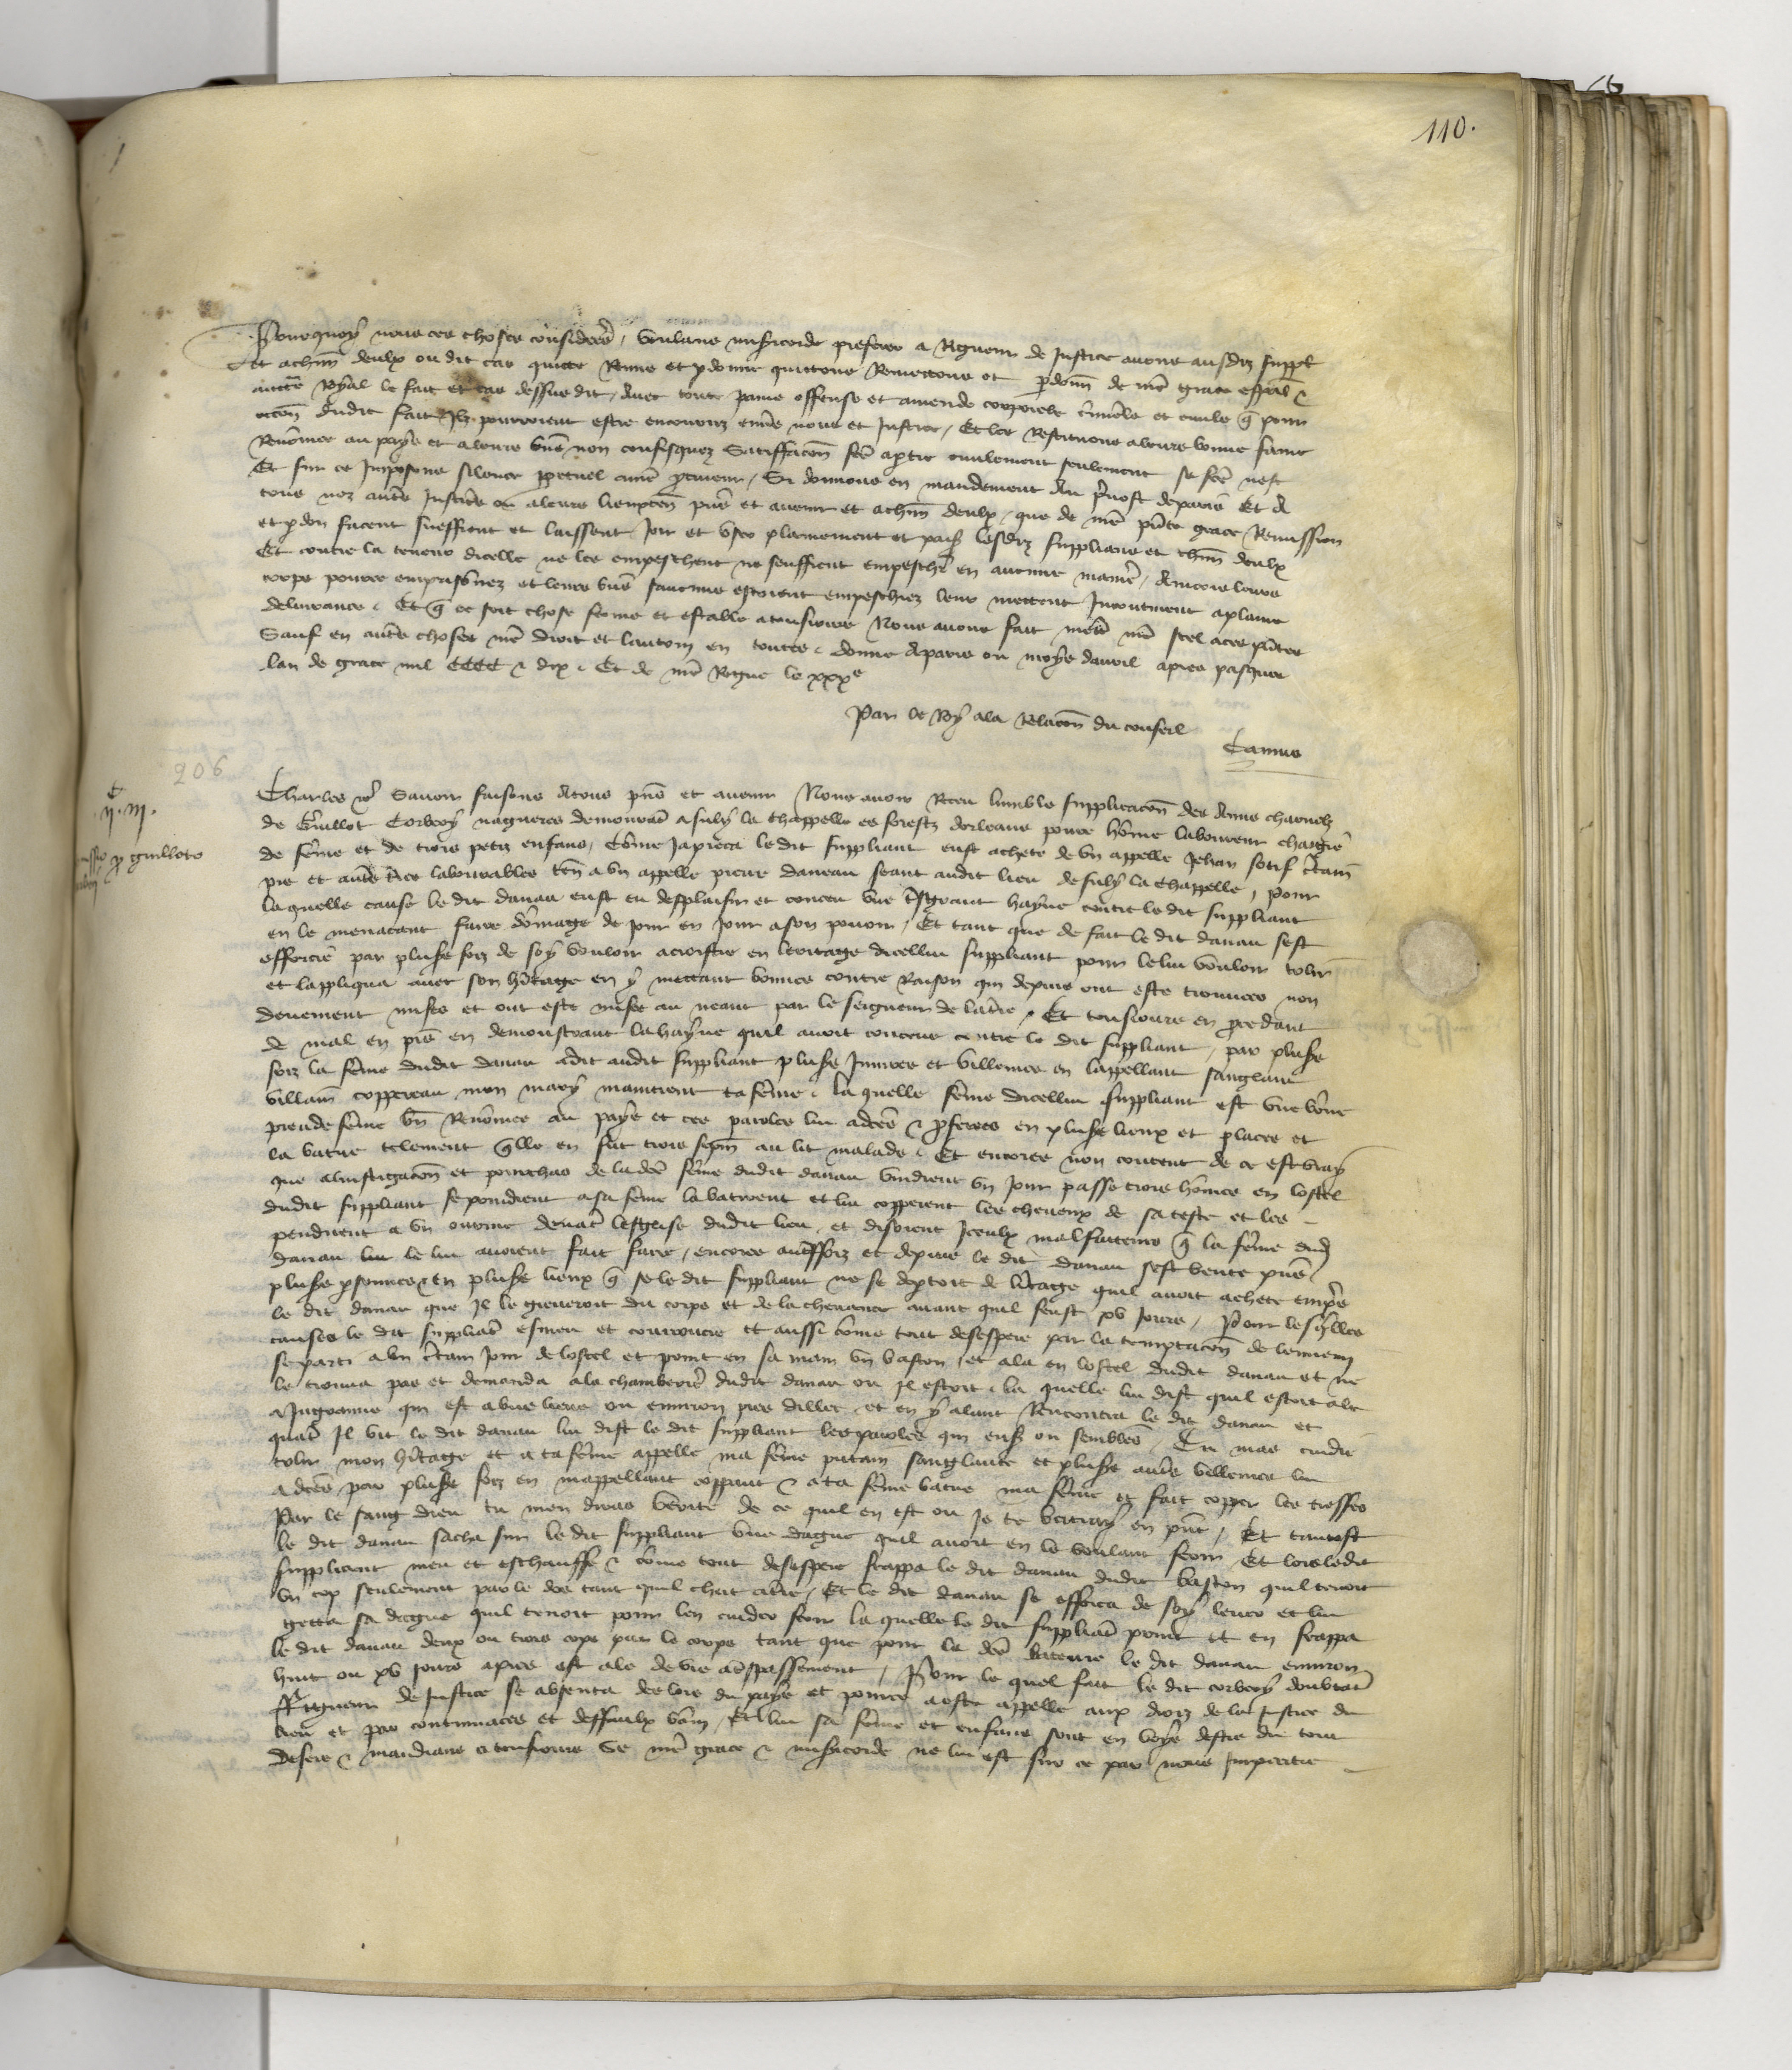 110.
Pourquoy nous ces choses considerés, voulans misericorde preferer a rigueur de justice avons ausdiz suppl
et achũn deulx ou dit cas quicte remis et pdonne quittons remettons et pdonñ de nre grace espãl
aucte royal le fait et cas dessusdit, avec toute paine offense et amende corporele crimele et civile q̃ pour
occõn dudit fait ilz pourroient estre encouruz envs nous et justice, Et les restituons a leurs bonne fame
renommee au pays et a leurs biẽs non confisquez satisfacõn fcẽ a ptie civilement seulement se fcẽ nest
Et sur ce imposons silence ppetuel a nre pcureur, Si donnons en mandement au prevost de paris Et a
tous noz autẽs justicĩers ou a leurs lieuxtenẽ prẽs et avenir et achũn deulx, que de nre pñte grace remission
et pdon facent sueffrent et laissent joir et user plainement et paisḅ lesdiz supplians et chũn deulx
Et contre la teneur dicelle ne les empeschent ne seuffrent empeschẽ en aucune manierẽ, Aincois leurs
corps pource emprisõnez et leurs biẽs saucuns estoient empeschiez leur mettent incontinent a plaine
delivrance. Et q̃ ce soit chose ferme et estable a tousiours Nous avons fait mettrẽ nre scel a ces pñtes
Sauf en autẽs choses nre droit et lautruy en toutes. donne A paris ou moys davril apres pasques
lan de grace mil CCCC & dix. Et de nre regne le xxxe
Par le Roy a la relacõn du conseil
Camus
206
Charles &c Savoir faisons A tous pñs et avenir Nous avoir receu lumble supplicacõn des Amis charnelz
de Guillot Corbeoy nagueres demourañt a sully la chappelle es forestz dorleans povre hõme laboureur chargie
de fẽme et de trois petiz enfans, Cõme ja pieca le dit suppliant eust achete de un appelle Jehan sotif ctaiñ
pre et autẽs tr̃es labourables teñ a un appelle pierre daneau seant audit lieu de sully la chappelle, Pour
laquelle cause le dit danau eust eu desplaisir et conceu une tresgrant hayne contre le dit suppliant
en le menacant faire dõmage de jour en jour a son povoir, Et tant que de fait le dit danau sest
efforcie par plusrs foiz de soy vouloir acroistre en leritage dicellui suppliant pour le lui vouloir tolir
et lappliqua avec son hẽitage en y mettant bonnes contre raison qui depuis ont este trouvees non
deuement mises et ont este mises au neant par le seigneur de la tr̃e, Et tousiours en pcedant
de mal en pis en demonstrant la hayne quil avoit conceue contre le dit suppliant, par plusrs
foiz la fẽme dudit danau a dit audit suppliant plusrs injures et villenies en lappellant sanglant
villain coppereau mon mary maintient ta fẽme. la quelle fẽme dicellui suppliant est une bõne
preude fẽme bñ renõmee au pays et ces paroles lui a dcẽs & pferees en plusrs lieux et places et
la batue telement q̃lle en fut trois sepm̃ au lit malade. Et encores non content de ce est vray
que a linstigacõn et pourchas de la dcẽ fẽme dudit danau vindrent un jour passe trois hõmes en lostel
dudit suppliant se pendirent a sa fẽme la batirent et lui copperent les cheveux de sa teste et les
pendirent a un ourme devañt lesglise dudit lieu, et disoient iceulx malfaiteurs q̃ la fẽme dud
danau le lui avoient fait faire, encores autffoiz et depuis le dit danau sest vente pñs
plusrs psonnes & en plusrs lieux q̃ se le dit suppliant ne se deptoit de litage quil avoit achete empres
le dit danau que il le greveroit du corps et de la chevance avant quil feust xv jours, Pour lesqlles
causes le dit suppliañt esmeu et courroucie et aussi cõme tout desespere par la temptacõn de lennemy
se parti a un ctain jour de lostel et print en sa main un baston, et ala en lostel dudit danau et ne
le trouva pas et demanda a la chamberierẽ dudit danau ou il estoit. la quelle lui dist quil estoit ale
a Ingrannie qui est a une lieue ou environ pres dillec, et en y alant rencontra le dit danau et
quañt il vit le dit danau lui dist le dit suppliant les paroles qui ensỹ ou semblẽs. Tu mas cuidie
tolir mon hẽitage et a ta fẽme appelle ma fẽme putain sanglante et plusrs autẽs villenies lui
a dcẽs par plusrs foiz en mappellant coppaut & a ta fẽme batue ma fẽme et fait copper les tresses
Par le sang dieu tu men diras verite de ce quil en est ou je te batray en pñt, Et tantost
le dit danau sacha sur le dit suppliant une dague quil avoit en le voulant ferir, Et lors ledit
suppliant meu et eschauffe & cõme tout desespere frappa le dit danau dudit baston quil tenoit
un cop seulement par le dos tant quil chut a trẽ, Et le dit danau se efforca de soy lever et lui
getta sa dague quil tenoit pour len cuider ferir la quelle le dit suppliañt print et en frappa
le dit danau deux ou trois cops par le corps tant que pour la dcẽ bateure le dit danau environ
huit ou xv jours apres est ale de vie a trespassement, Pour le quel fait le dit corbeoy doubtañt
rigueur de justice se absenta des lors du pays et pource a este appelle aux droiz de la justice du
lieu et par contumaces et deffaulx bany, Et lui sa fẽme et enfans sont en voye destre du tout
desers & mandians a tousiours se nre grace & misericorde ne lui est sur ce par nous impartie